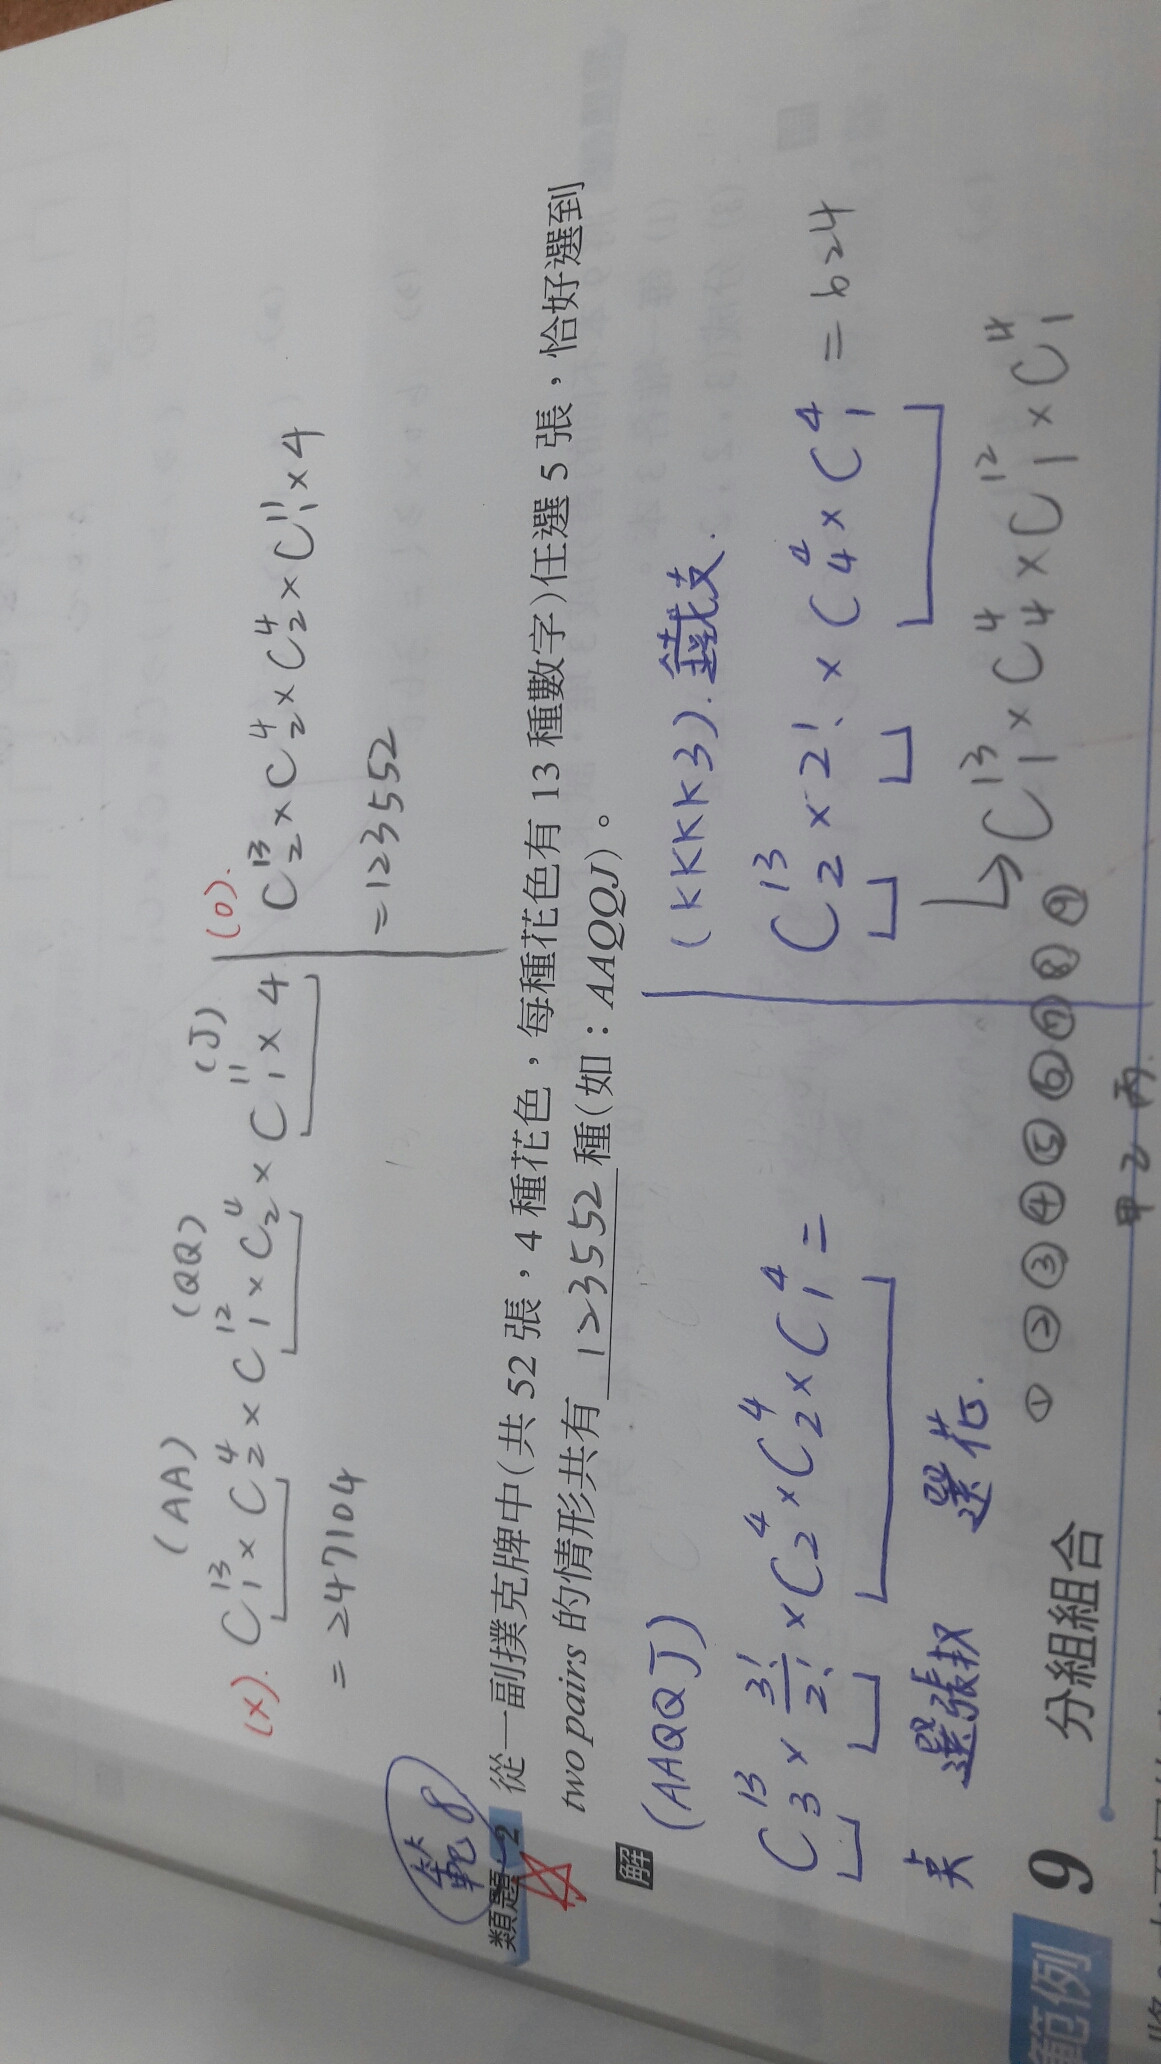 (AA) (QQ) (J)
(x). C¹³₁ × C⁴₂ × C¹²₁ × C⁴₂ × C¹¹₁ × 4
= 247104
(o).
C¹³₂ × C⁴₂ × C⁴₂ × C¹¹₁ × 4
= 123552
範8
類題-2 從一副撲克牌中(共 52 張,4 種花色,每種花色有 13 種數字)任選 5 張,恰好選到
two pairs 的情形共有 123552 種(如:AAQQJ)。
解
(AAQQJ)
C¹³₃ × 3!/2! × C⁴₂ × C⁴₂ × C⁴₁ =
選張数 選花.
(KKKK3). 鐵支.
C¹³₂ × 2! × C⁴₄ × C⁴₁ = 624
↳ C¹³₁ × C⁴₄ × C¹²₁ × C⁴₁
範例 9 分組組合 ① ② ③ ④ ⑤ ⑥ ⑦ ⑧ ⑨
甲 乙 丙